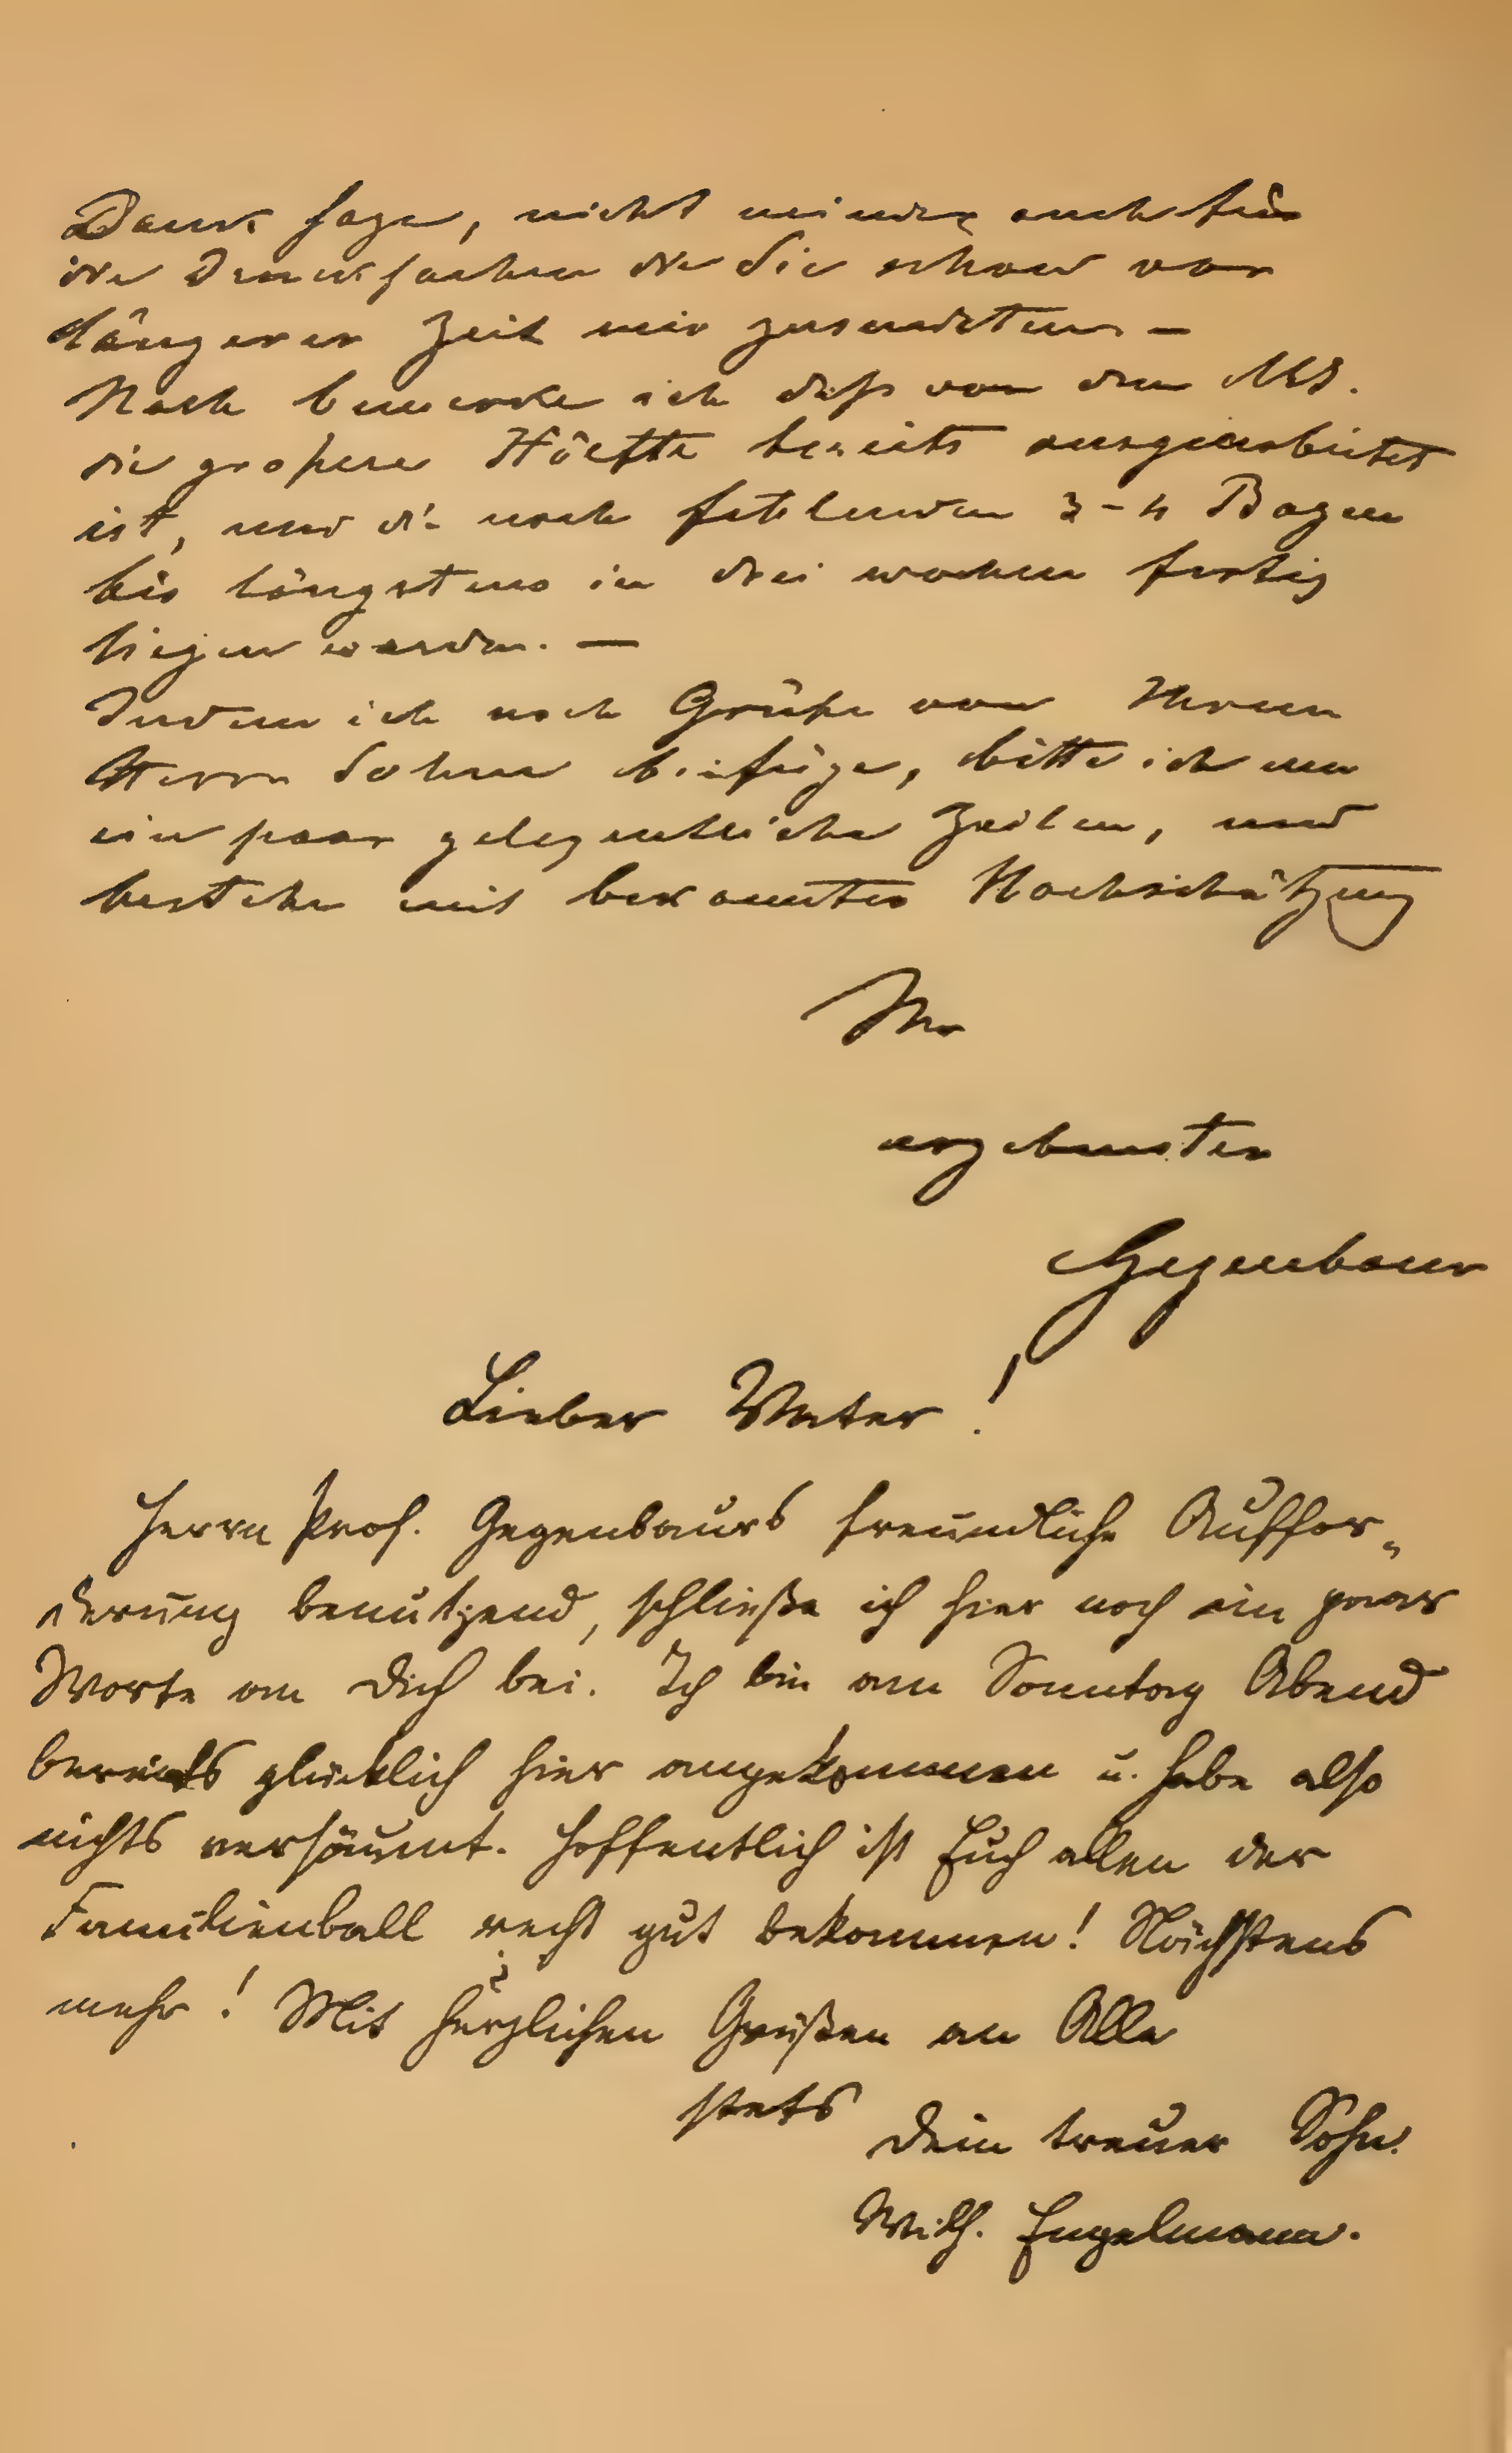 Dank sage, nicht minder auch für
die Drucksachen die Sie schon vor
längerer Zeit mir zusendeten. —
Noch bemerke ich daß von dem MS.
die großere Hälfte bereits ausgearbeitet
ist, und die noch fehlenden 3-4 Bogen
bis längstens in drei wochen fertig
liegen werden. —
Indem ich noch Grüße von Ihrem
Herrn Sohne beifüge, bitte ich um
ein paar gelegentliche Zeilen, und
bestehe mit bekannter Hochschätzung
Ihr
ergebenster
Gegenbaur
Lieber Vater!
Herrn Prof. Gegenbaurs freundliche Auffor-
derung benutzend, schließe ich hier noch ein paar
Worte an Dich bei. Ich bin am Sonntag Abend
bereits glücklich hier angekommen u. habe also
nichts versäumt. Hoffentlich ist Euch allen der
Familienball recht gut bekommen! Nächstens
mehr! Mit herzlichen Grüßen an Alle
stets
Dein treuer Sohn.
Wilh. Engelmann.